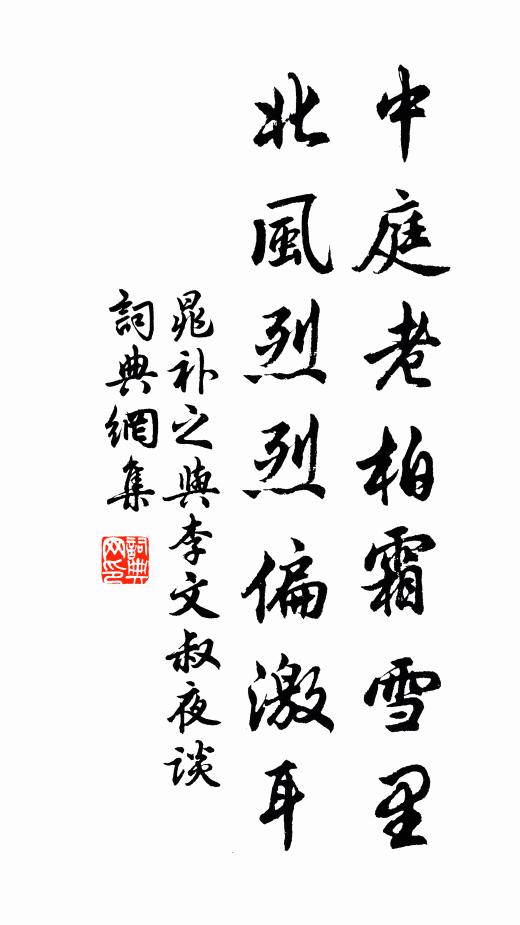 中庭老柏霜雪里
北風烈烈偏激耳
晁补之與李文叔夜谈
詞典網集
詞典网印